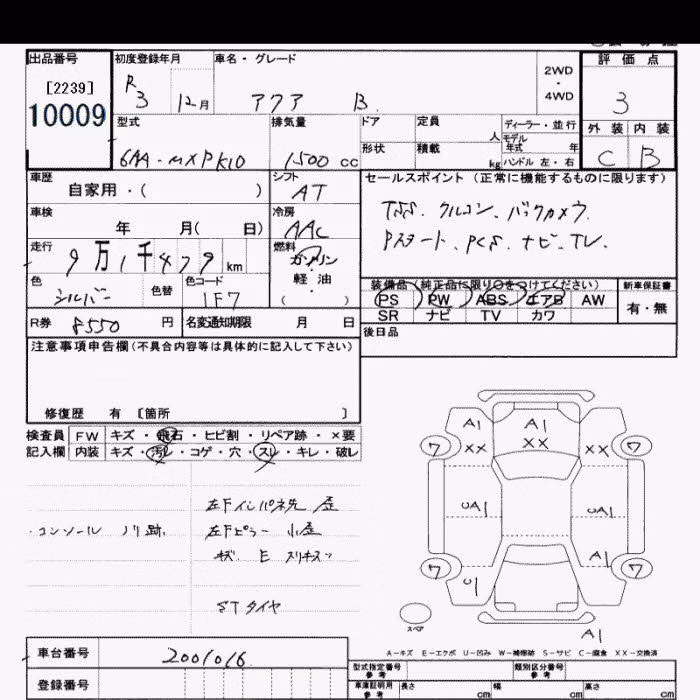 出品番号
[2239]
10009
初度登録年月
R3 12月
車名・グレード
アクア B
2WD
・
4WD
評価点
3
外装 内装
C B
型式
6AA-MXPK10
排気量
1500 cc
ドア
定員
人
形状
積載
kg
ディーラー・並行
モデル
年式 年
ハンドル 左・右
車歴
自家用・( )
シフト
AT
セールスポイント(正常に機能するものに限ります)
TSS. クルコン. バックカメラ.
Pスタート. PCS. ナビ. TV.
車検
年 月( 日)
冷房
AAC
走行
9万1千479km
燃料
ガソリン
・
軽油
( )
色
シルバー
色替
色コード
1F7
装備品(純正品に限り○をつけてください)
PS PW ABS エアB AW
SR ナビ TV カワ
新車保証書
有・無
R券 8550 円
名変通知期限 月 日
後日品
注意事項申告欄(不具合内容等は具体的に記入して下さい)
修復歴 有 [箇所 ]
検査員
記入欄
FW キズ・飛石・ヒビ割・リペア跡・×要
内装 キズ・汚レ・コゲ・穴・スレ・キレ・破レ
・コンソール ノリ跡.
左Fインパネ先 歪
左Fピラー 小歪
キズ E スリキズ
STタイヤ
A1
A1
XX
XX
XX
ワ
ワ
UA1
UA1
A1
ワ
ワ
U1
A1
スペア
A-キズ E-エクボ U-凹み W-補修跡 S-サビ C-腐食 XX-交換済
車台番号
2001016
登録番号
型式指定番号
参考
類別区分番号
参考
車庫証明用
参考
長さ cm
幅 cm
高さ cm